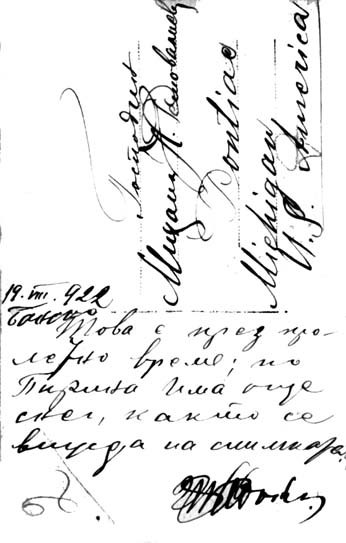 Господинъ
Михаилъ
Pontiac
Michigan
U. S. America
19. III. 922
Банско
Това е през про-
летно време; по
Пирина има още
снег, както се
вижда на снимката.